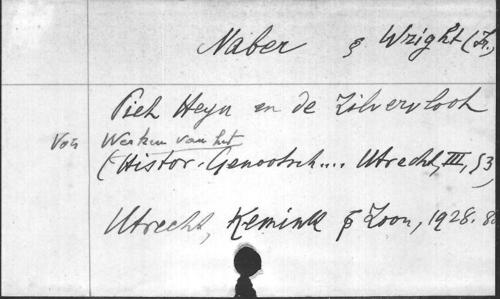 Naber & Wright (I.)
Piet Heyn en de Zilvervloot
Voir Werken van het
(Histor. Genootsch.... Utrecht, III, 53)
Utrecht, Kemink & Zoon, 1928. 8o